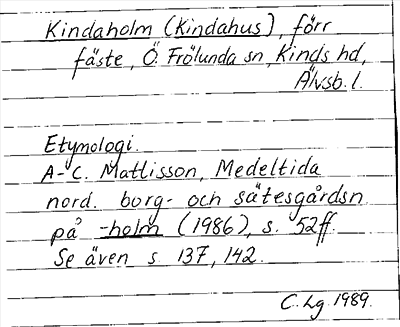 Kindaholm (Kindahus), förr
fäste, Ö. Frölunda sn, Kinds hd,
Älvsb. l.
Etymologi.
A-C. Mattisson, Medeltida
nord. borg- och sätesgårdsn
på -holm (1986), s. 52ff.
Se även s. 137, 142.
C. Lg. 1989.